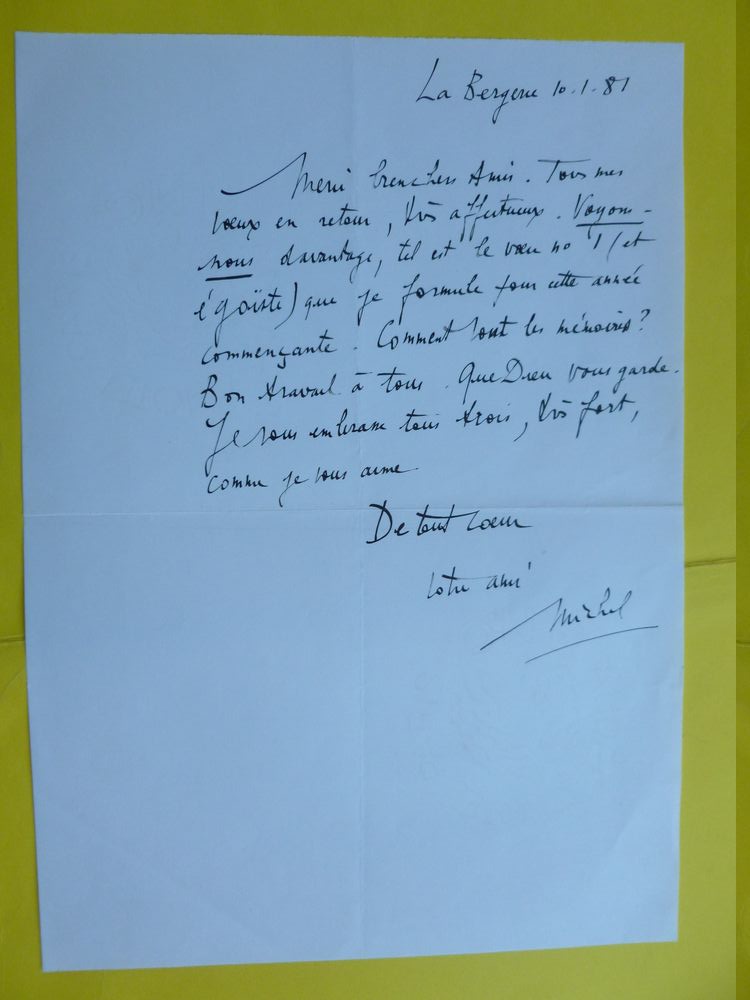 La Bergerie 10.1.81
Merci bien chers Amis. Tous mes
vœux en retour, très affectueux. Voyons-
nous davantage, tel est le vœu no 1 (et
égoïste) que je formule pour cette année
commençante. Comment vont les mémoires?
Bon travail à tous. Que Dieu vous garde.
Je vous embrasse tous trois, très fort,
comme je vous aime.
De tout cœur
votre ami
Michel